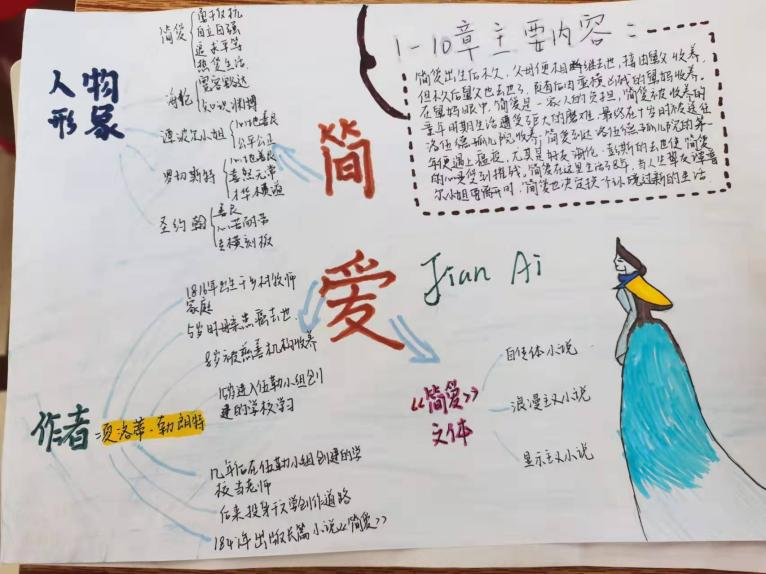 人物
形象
简爱
勇于反抗
自立自强
追求平等
热爱生活
海伦
宽容豁达
知识渊博
谭波尔小姐
心地善良
公平公正
罗切斯特
心地善良
喜怒无常
才华横溢
圣约翰
善良
心苦耐劳
古模刻板
简
爱
Jian Ai
1-10章主要内容:
简爱出生后不久,父母便相继去世,搞由舅父收养,
但不久后舅父也去世了,随后由蛮横凶残的舅妈收养。
在舅妈眼中,简爱是一客人的负担,简爱被收养的
童年时期生活遭受巨大的磨难,最终在十岁时被送往
洛伍德孤儿院收养,简爱到达洛伍德孤儿院的第一
年便遇上瘟疫,尤其是好友海伦·彭斯的去世使简爱
的心灵受到挑战,简爱在这里生活8年,当人生挚友谭普
尔小姐离开时,简爱也决定换个环境过新的生活
作者:夏洛蒂·勃朗特
1816年出生于乡村牧师
家庭
5岁时母亲患癌去世
8岁被慈善机构收养
15岁进入伍勒小姐创
建的学校学习
几年后在伍勒小姐创建的学
校当老师
后来投身于文学创作道路
1847年出版长篇小说《简爱》
《简爱》
文体
自传体小说
浪漫主义小说
显示主义小说